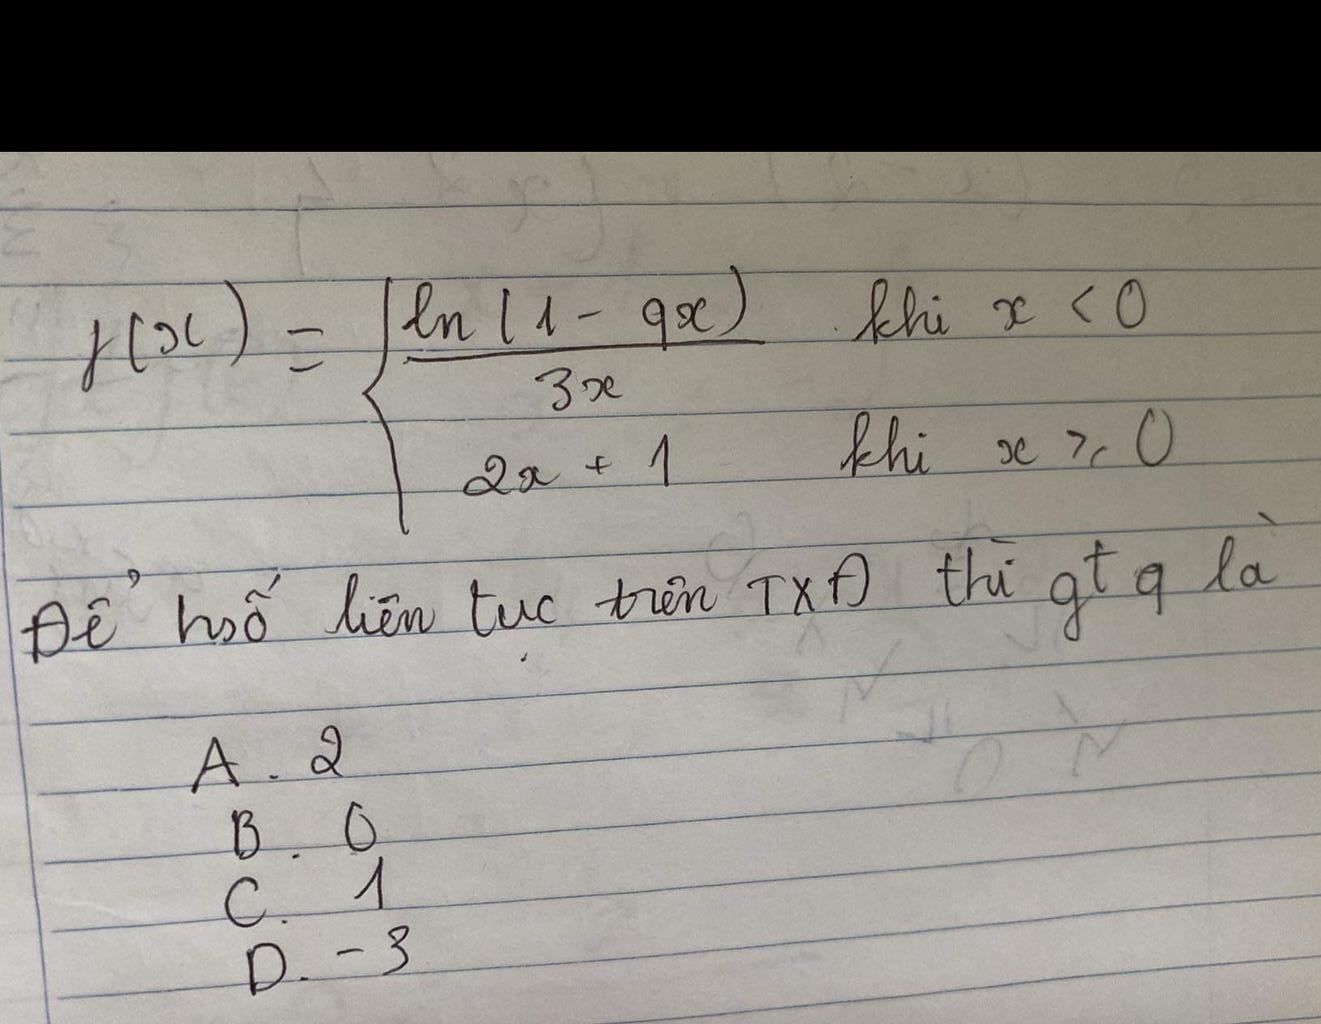 f(x) = { ln(1 - qx) / 3x khi x < 0
2x + 1 khi x ≥ 0
Để hsố liên tục trên TXĐ thì gt q là
A. 2
B. 0
C. 1
D. -3